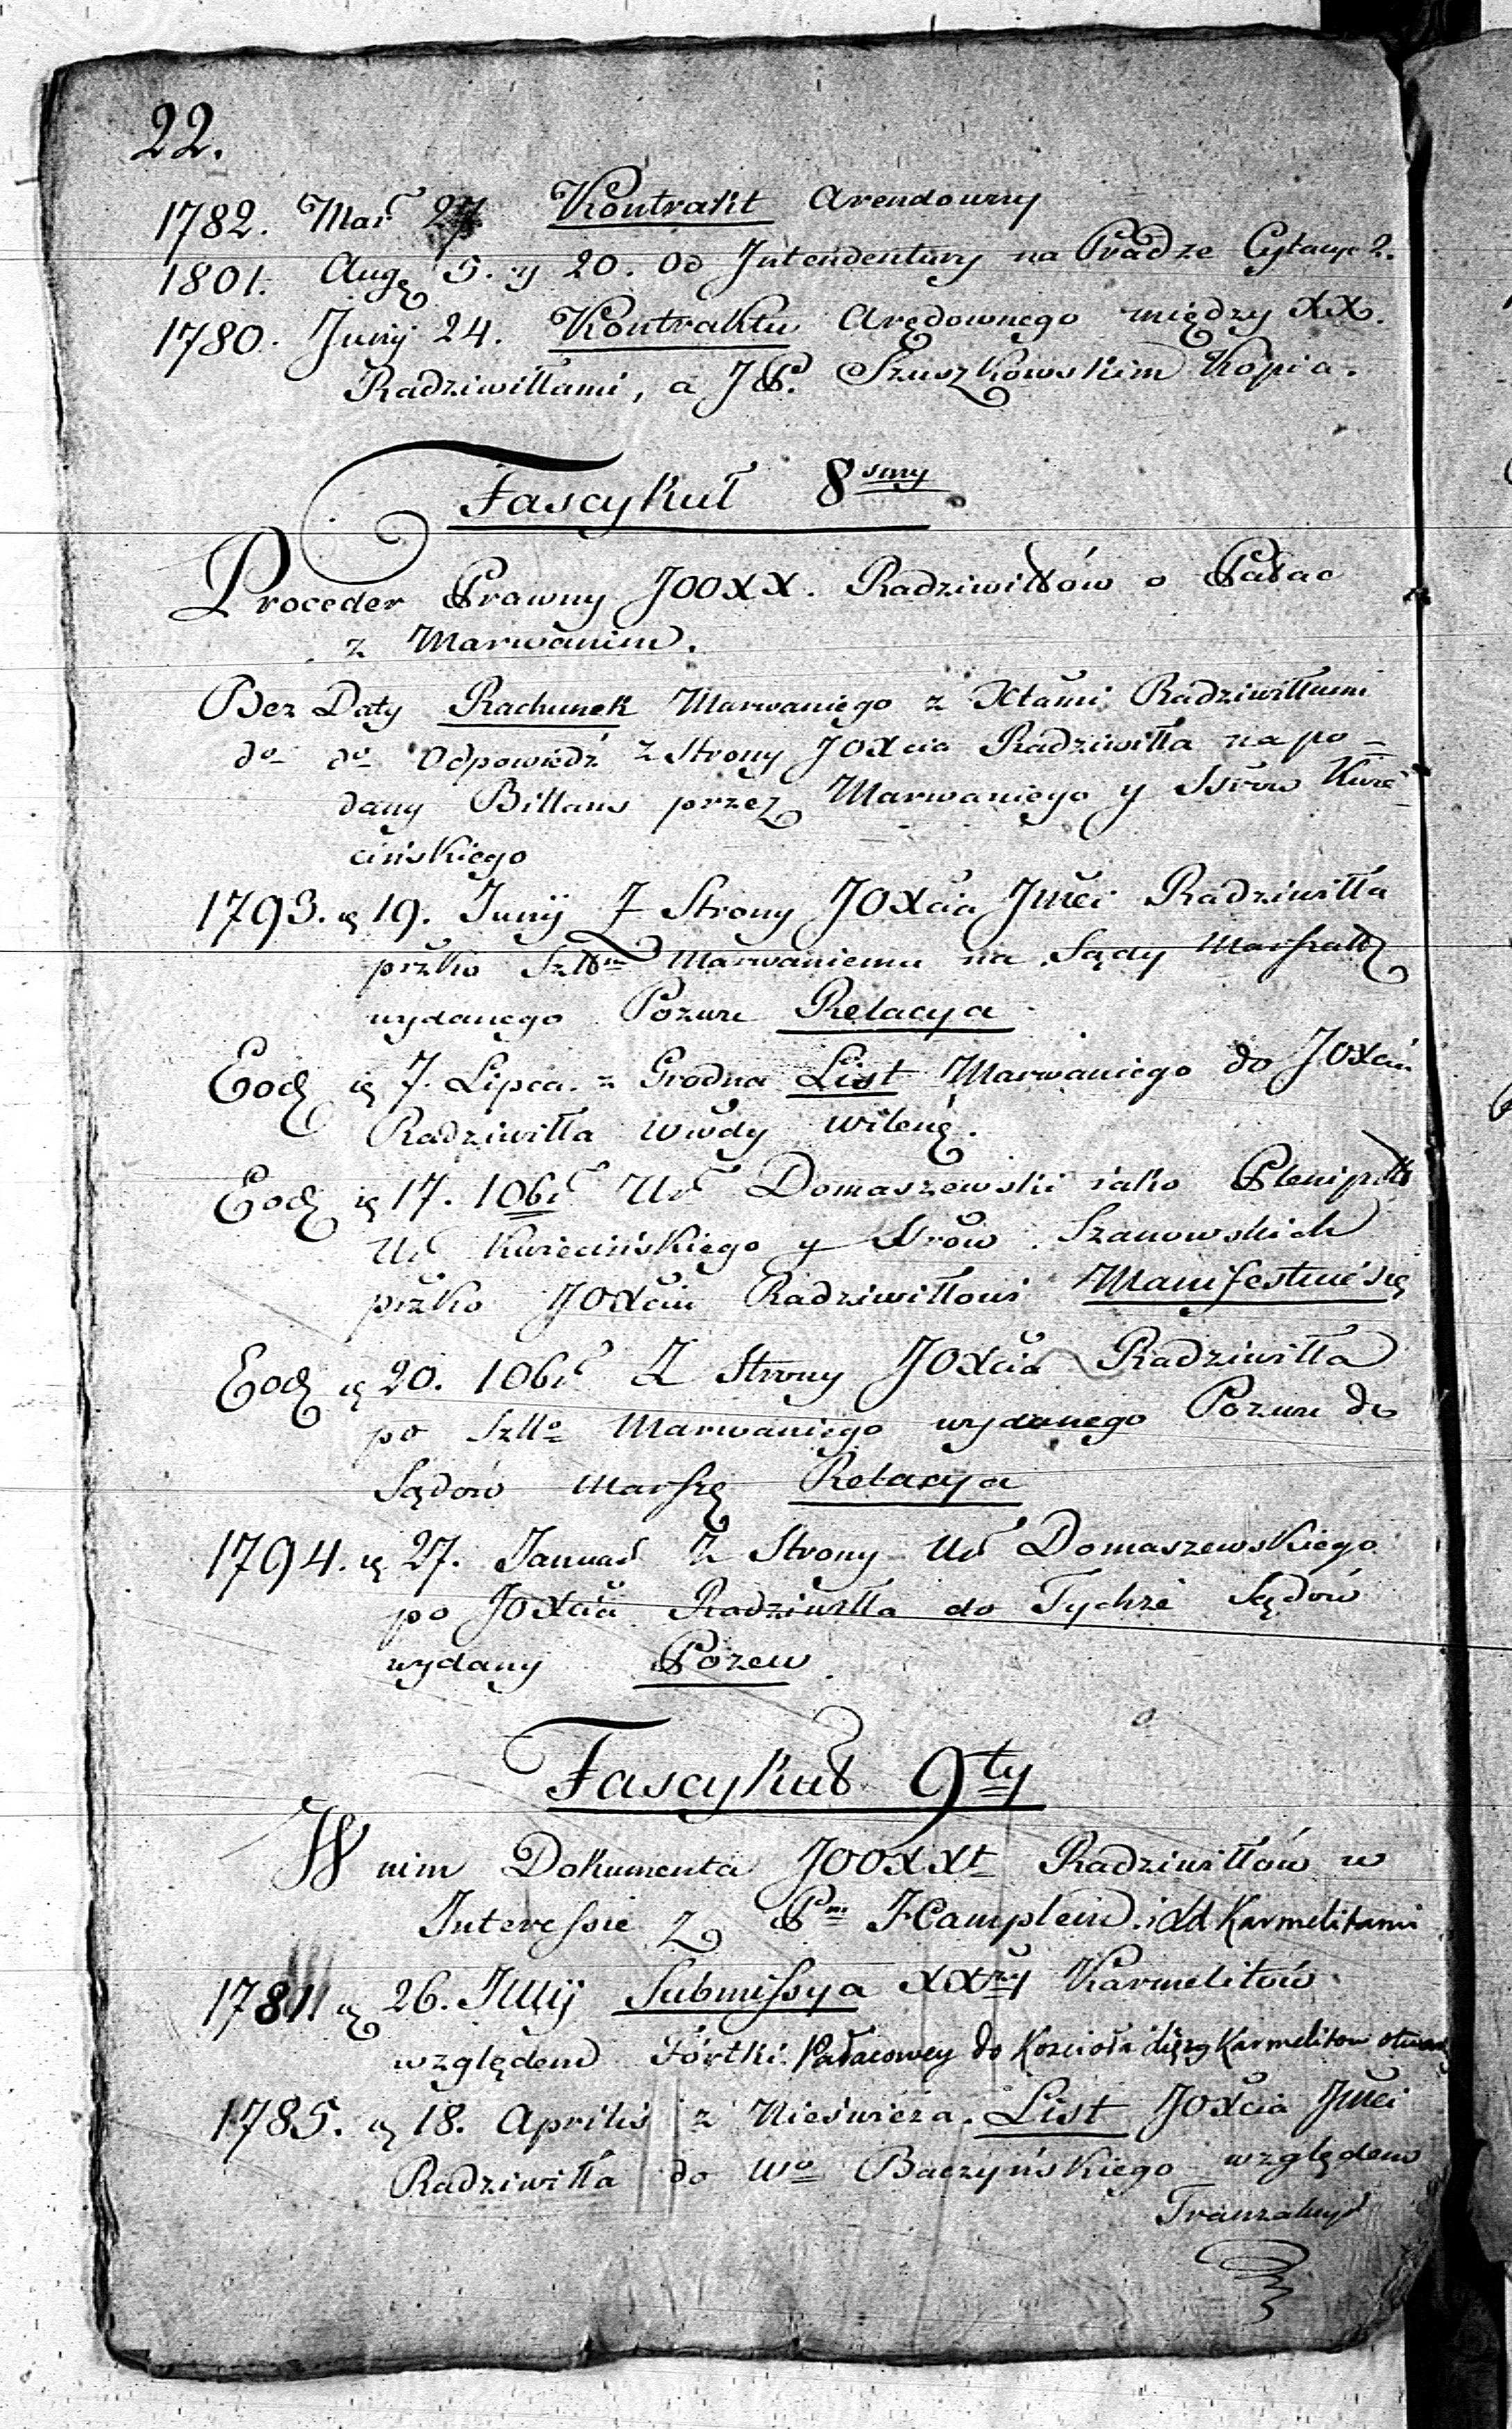 22.
1782. Mar 27 Kontrakt Arendowny
1801. Aug 5. y 20. Od Intendentury na Pradze Cytacye 2.
1780. Junij 24. Kontraktu Arędownego między XX.
Radziwiłłami, a JP. Szuszkowskim Kopia.
Fascykuł 8smy
Proceder Prawny JOOXX. Radziwiłłów o Pałac
z Marwanim.
Bez Daty Rachunek Marwaniego z Xtami Radziwiłłami
do do Odpowiedź z Strony JOXcia Radziwiłła na po=
dany Billans przez Marwaniego y Ssrow Kwie=
cińskiego
1793. 19. Junij Z Strony JOXcia Jmci Radziwiłła
przko Szlo Marwaniemu na Sądy Marszałk
wydanego Pozwu Relacya
Eod 7. Lipca. z Grodna List Marwaniego do JOXcia
Radziwiłła Wwdy Wileń.
Eod 17. 10br Ur Domaszewski iako Plenipott
Ur Kwiecińskiego y Ssrów Szanowskich
przko JOXciu Radziwiłłowi Manifestuie się
Eod 20. 10br Z Strony JOXcia Radziwiłła
po Szllo Marwaniego wydanego Pozwu do
Sądów Marsz Relacya
1794. 27. Januar Z Strony Ur Domaszewskiego
po JOXcia Radziwiłła do Tychże Sądów
wydany Pozew
Fascykuł 9ty
W nim Dokumenta JOOXXt Radziwiłłów w
Interessie z Pm Camplein i Karmelitami
178 26. Submissya XXży Karmelitów
względem Fórtki Pałacowey do Kościoła Xięży Karmelitow
1785. 18. Aprilis z Nieświeża. List JOXcia Jmci
Radziwiłła do Wo Baczyńskiego względem
Tranzakcyi